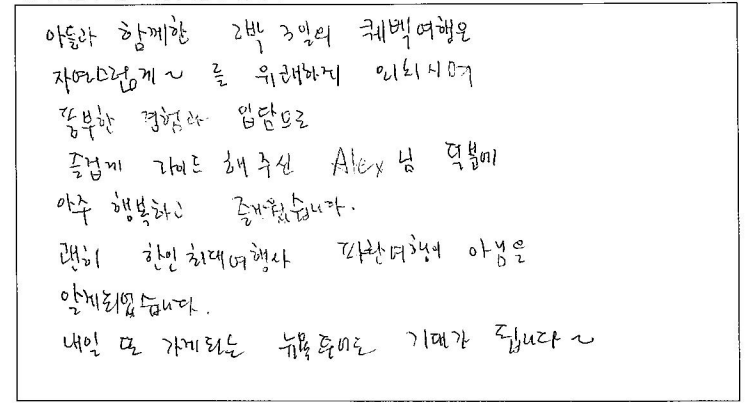 아들과 함께한 2박 3일의 퀘벡여행은
자연스럽게~ 를 유쾌하게 외치시며
풍부한 경험과 입담으로
즐겁게 가이드 해 주신 Alex님 덕분에
아주 행복하고 즐거웠습니다.
괜히 한인최대여행사 파란여행이 아님을
알게되었습니다.
내일 또 가게되는 뉴욕투어도 기대가 됩니다~